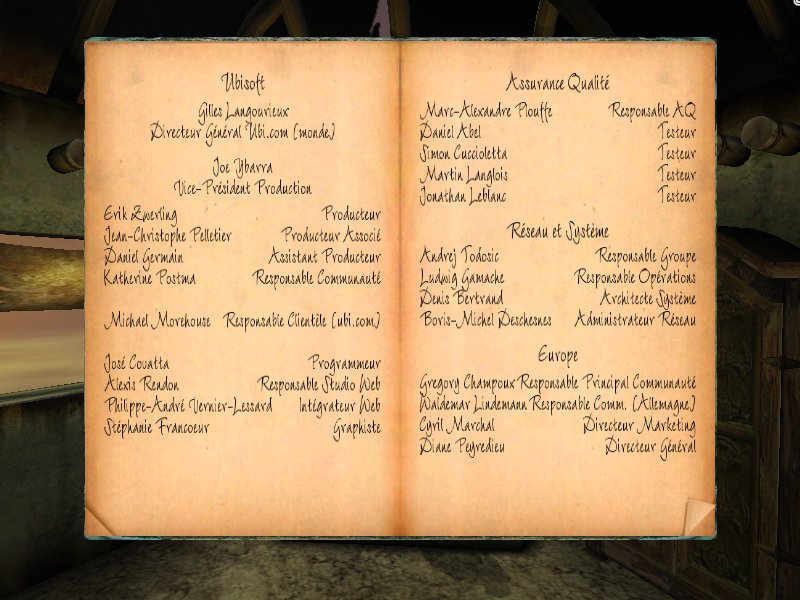 Ubisoft
Gilles Langourieux
Directeur Général Ubi.com (monde)
Joe Ybarra
Vice-Président Production
Erik Zwerling Producteur
Jean-Christophe Pelletier Producteur Associé
Daniel Germain Assistant Producteur
Katherine Postma Responsable Communauté
Michael Morehouse Responsable Clientèle (ubi.com)
José Couatta Programmeur
Alexis Rendon Responsable Studio Web
Philippe-André Vernier-Lessard Intégrateur Web
Stéphanie Francoeur Graphiste
Assurance Qualité
Marc-Alexandre Plouffe Responsable AQ
Daniel Abel Testeur
Simon Cuccioletta Testeur
Martin Langlois Testeur
Jonathan Leblanc Testeur
Réseau et Système
Andrej Todosic Responsable Groupe
Ludwig Gamache Responsable Opérations
Denis Bertrand Architecte Système
Boris-Michel Deschesnes Administrateur Réseau
Europe
Gregory Champoux Responsable Principal Communauté
Waldemar Lindemann Responsable Comm. (Allemagne)
Cyril Marchal Directeur Marketing
Diane Peyredieu Directeur Général